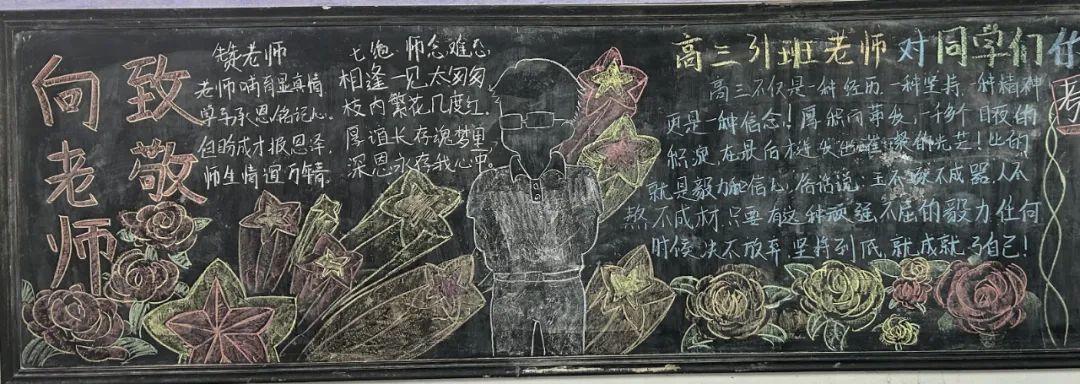 致敬
向老师
赞老师
老师哺育显真情
尊手承恩铭记心
但盼成才报恩泽,
师生情谊万年青
七绝 师念难忘
相逢一见太匆匆
校内繁花几度红.
厚谊长存魂梦里,
深恩永存我心中.
高三31班老师对同学们
高三不仅是一种经历,一种坚持,一种精神
更是一种信念!厚积而薄发,一千多个日夜的
积淀,在最后放出璀璨的光芒!比的
就是毅力和信心,俗话说:玉不琢不成器,人不
熬不成材,只要有这种顽强不屈的毅力任何
时候决不放弃,坚持到底,就成就了自己!